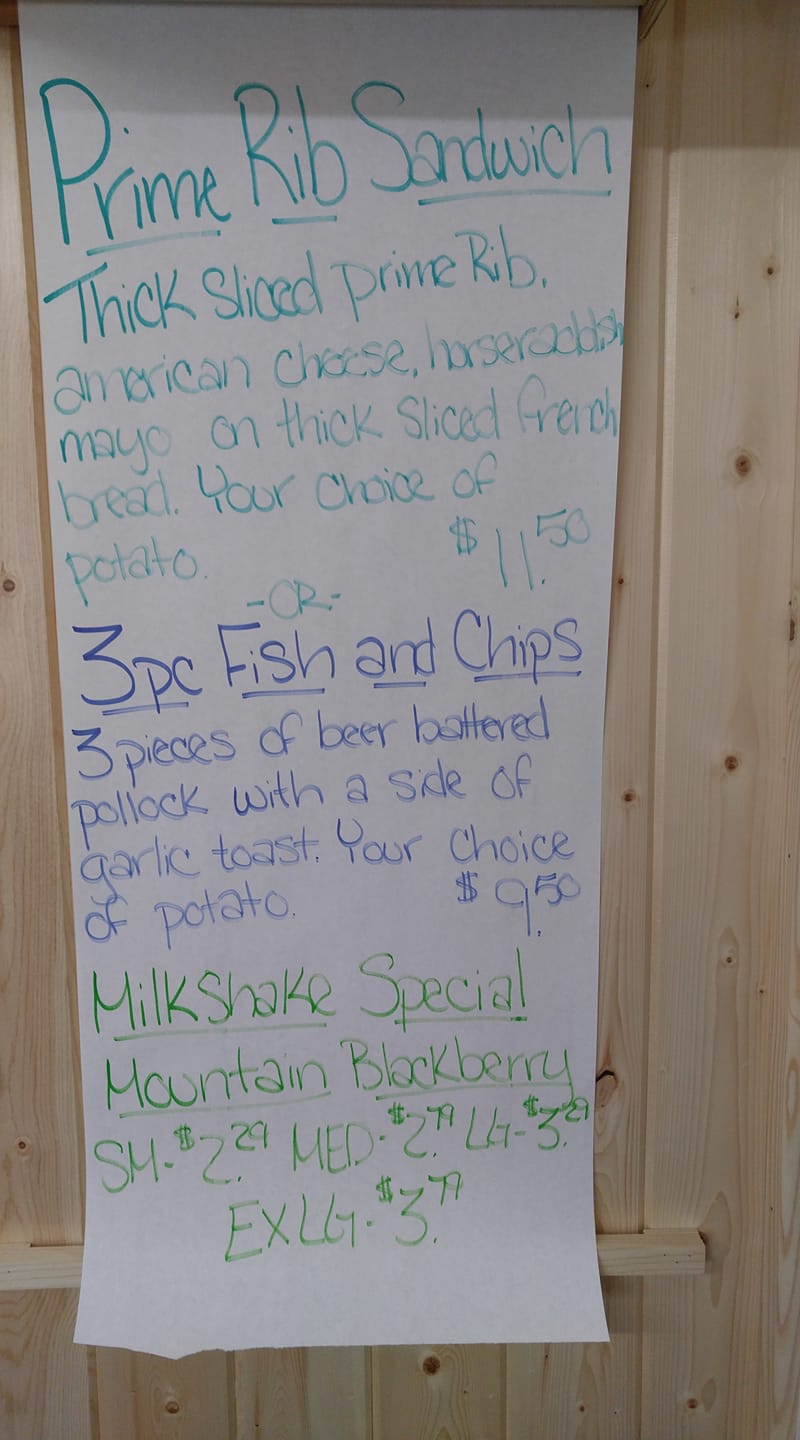 Prime Rib Sandwich
Thick Sliced prime Rib,
american cheese, horseraddish
mayo on thick sliced french
bread. Your choice of
potato. $11.50
-OR-
3pc Fish and Chips
3 pieces of beer battered
pollock with a side of
garlic toast. Your choice
of potato. $9.50
MilkShake Special
Mountain Blackberry
SM-$2.29 MED-$2.79 LG-$3.29
EXLG-$3.79